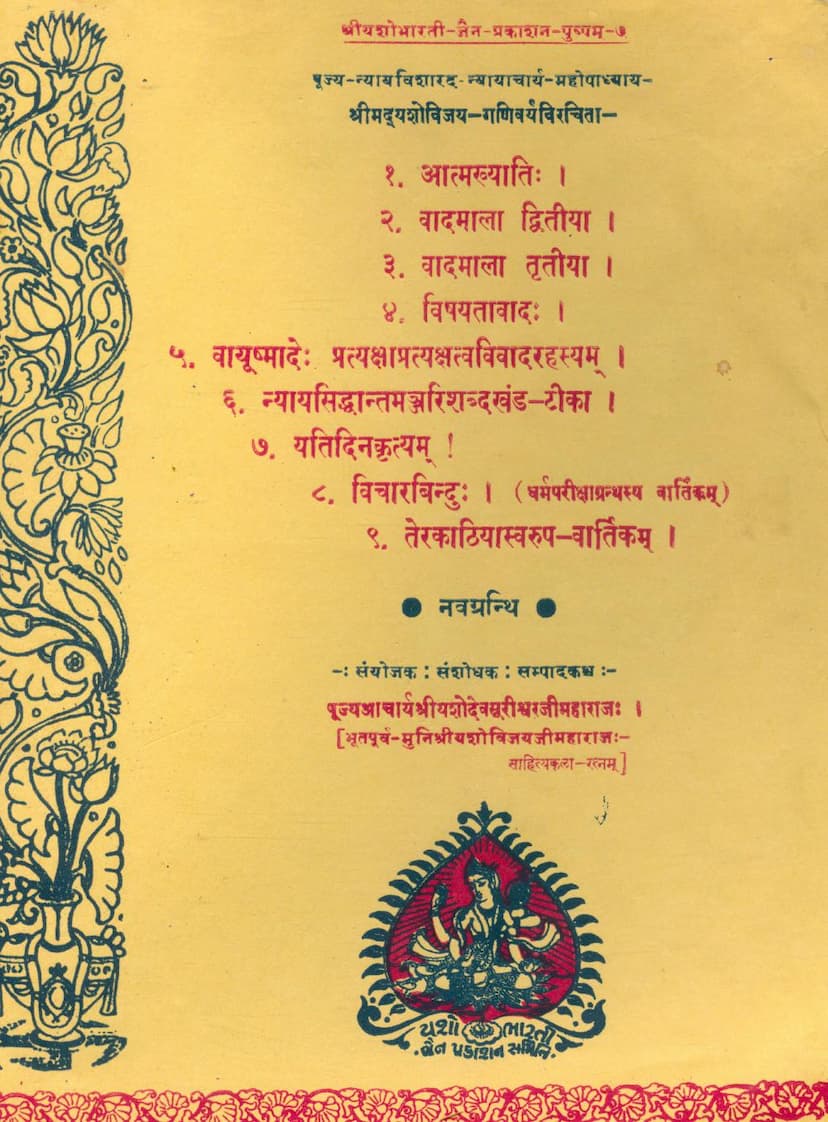 श्रीयशोभारती-जैन-प्रकाशन-पुष्पम्-७
पूज्य-न्यायविशारद-न्यायाचार्य-महोपाध्याय-
श्रीमद्यशोविजय-गणिवर्यविरचिता-
१. आत्मख्यातिः ।
२. वादमाला द्वितीया ।
३. वादमाला तृतीया ।
४. विषयतावादः ।
५. वायूष्मादेः प्रत्यक्षाप्रत्यक्षत्वविवादरहस्यम् ।
६. न्यायसिद्धान्तमञ्जरिशब्दखंड-टीका ।
७. यतिदिनकृत्यम् !
८. विचारबिन्दुः । (धर्मपरीक्षाग्रन्थस्य वार्तिकम्)
९. तेरकाठियास्वरुप-वार्तिकम् ।
● नवग्रन्थि ●
-: संयोजक : संशोधक : सम्पादकश्च :-
पूज्यआचार्यश्रीयशोदेवसूरीश्वरजीमहाराजः ।
[भूतपूर्व-मुनिश्रीयशोविजयजीमहाराजः-
साहित्यकला-रत्नम्]
યશો ભારતી
જૈન પ્રકાશન સમિતિ